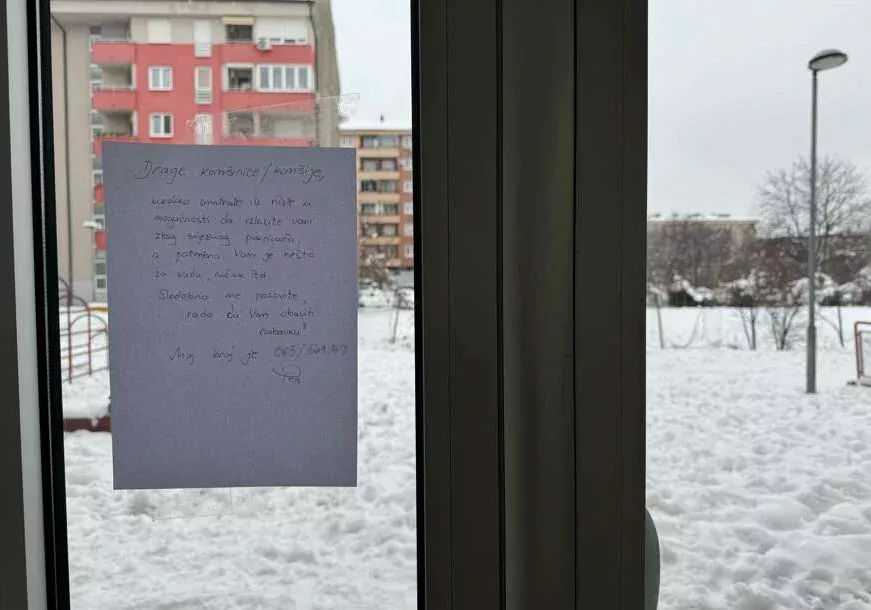 Drage komšinice/komšije,
ukoliko smatrate da niste u
mogućnosti da izlazite vani
zbog snježnog pokrivača,
a potrebno Vam je nešto
za kuću, ručak itd.
Slobodno me pozovite,
rado ću Vam obaviti
nabavku!
Moj broj je